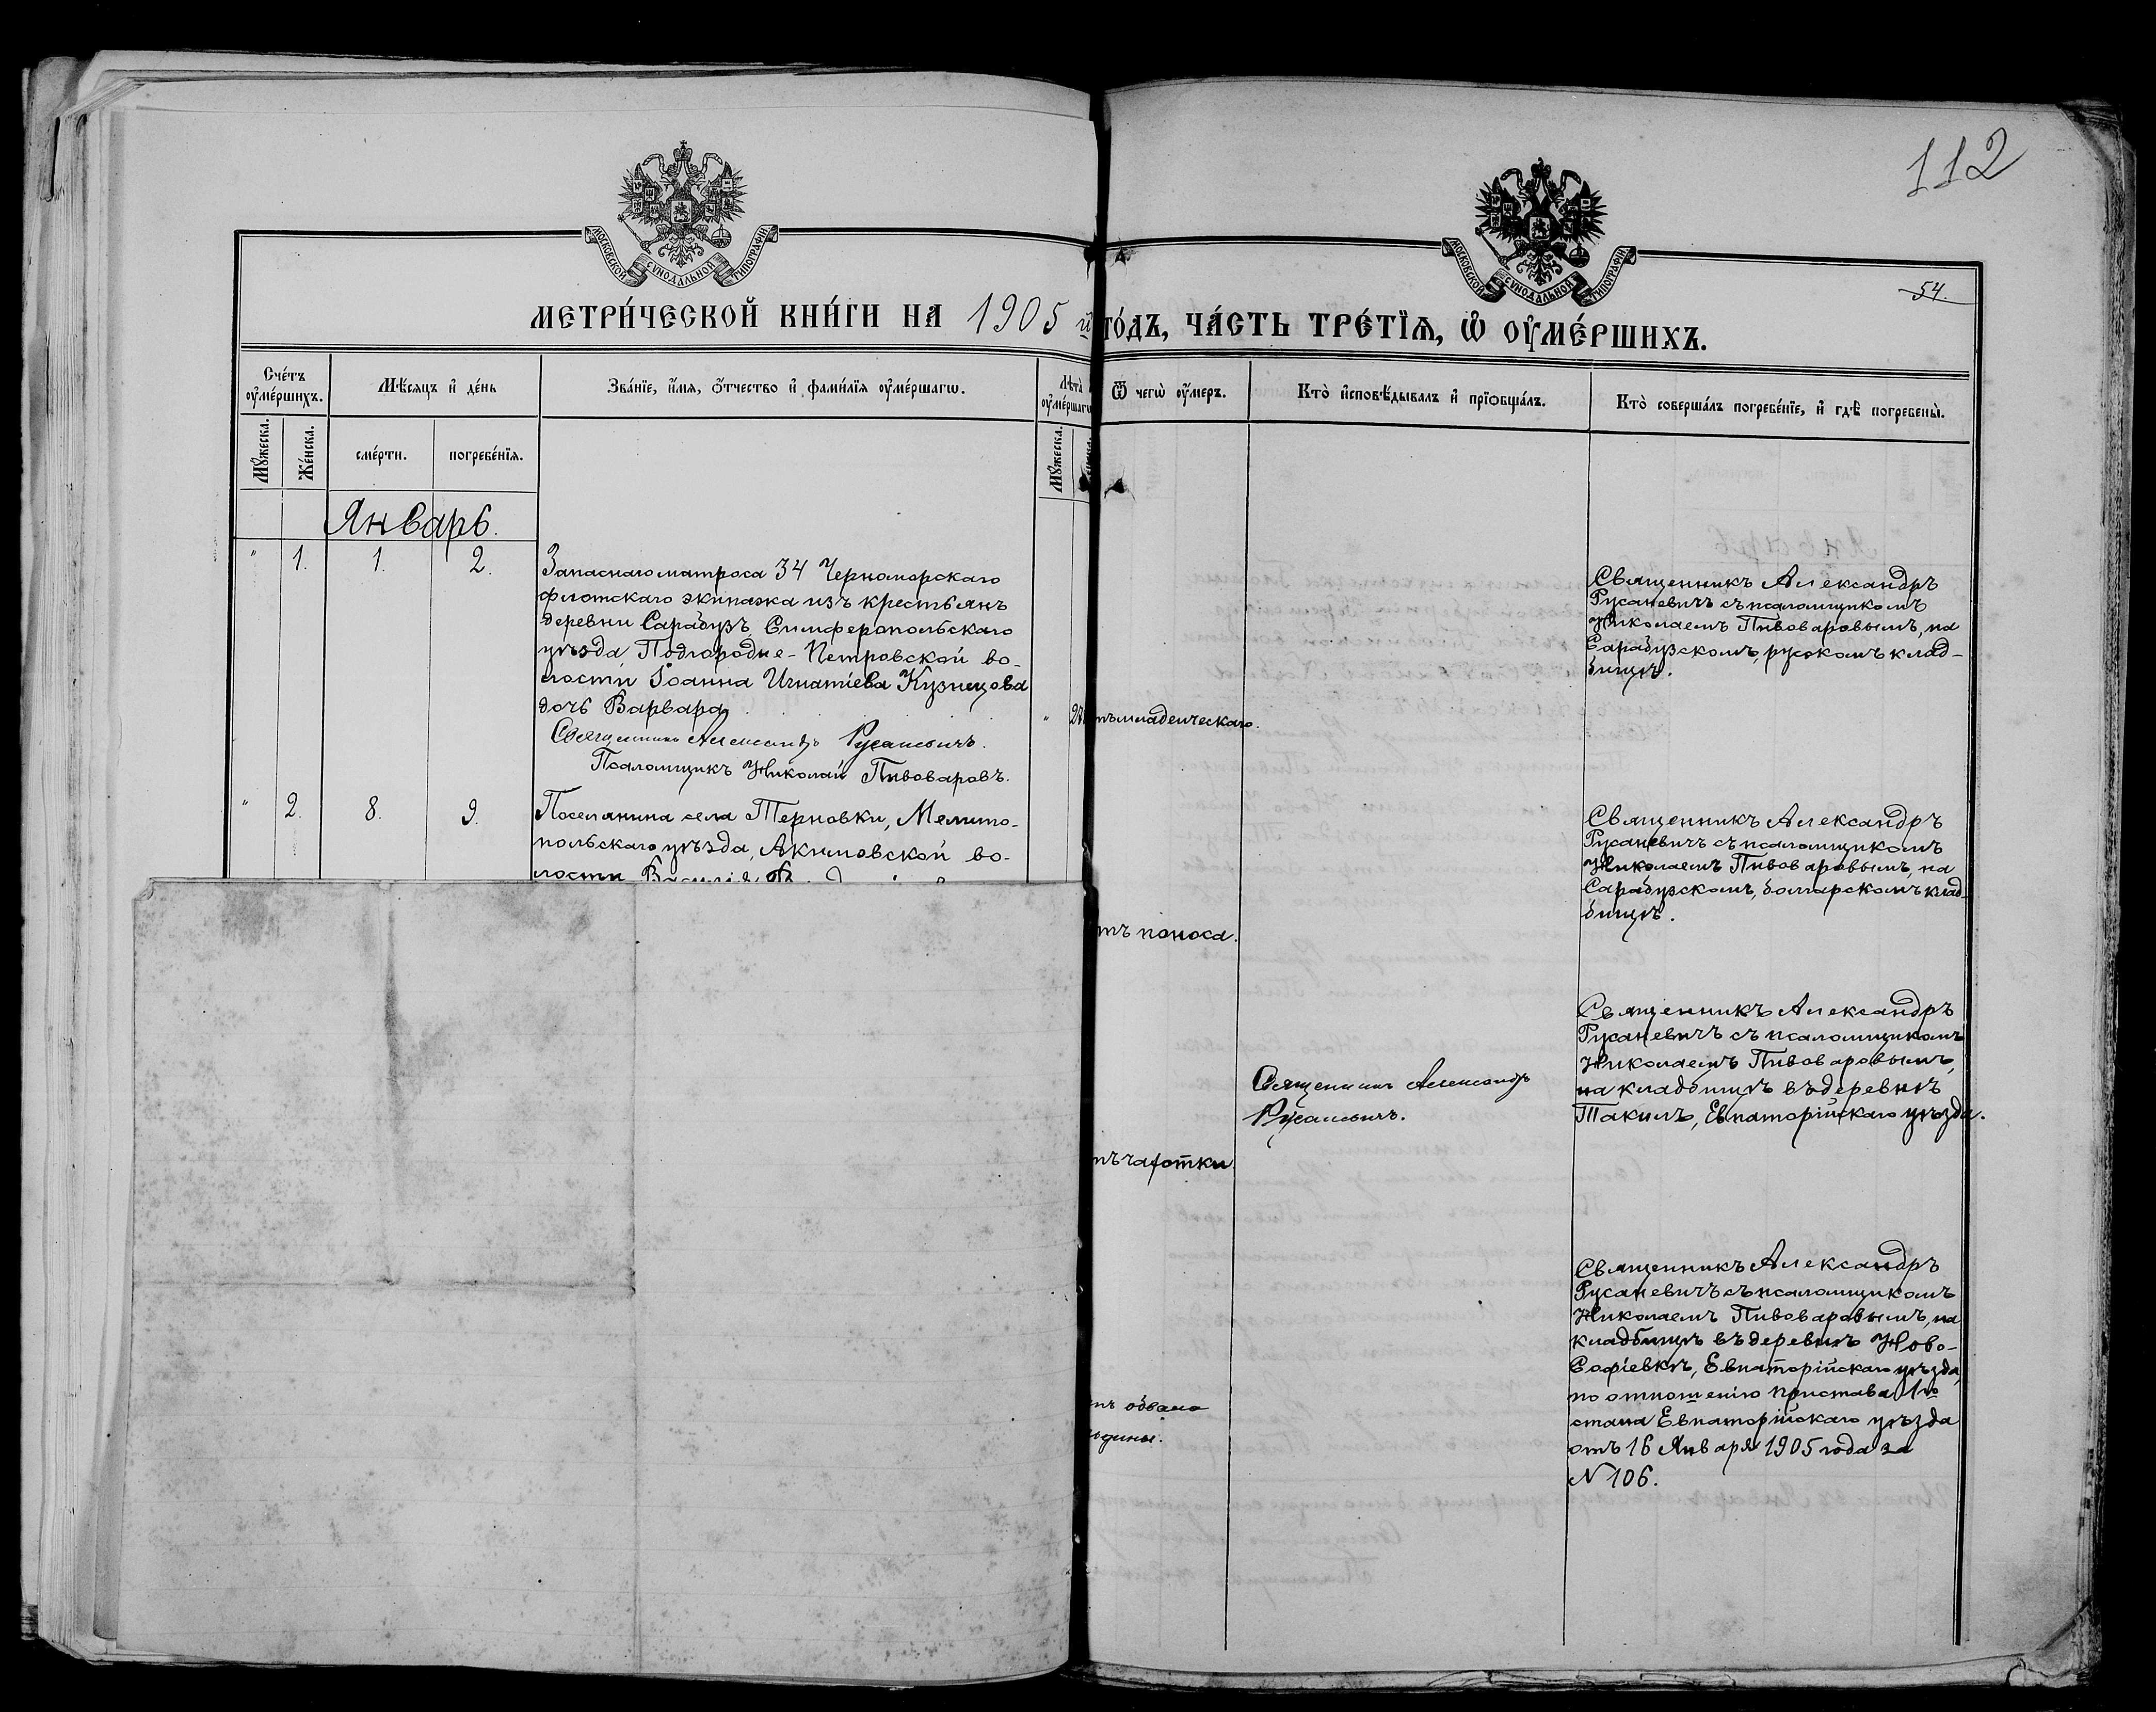 112
54.
МОСКОВСКОЙ СѴНОДАЛЬНОЙ ТИПОГРАФІИ
МОСКОВСКОЙ СѴНОДАЛЬНОЙ ТИПОГРАФІИ
МЕТРИ́ЧЕСКОЙ КНИ́ГИ НА 1905 й
ГО́ДЪ, ЧА́СТЬ ТРЕ́ТІѦ, Ѡ҆ ОУ҆МЕ́РШИХЪ.
Сче́тъ
оу҆ме́ршихъ.
Мѣ́сяцъ и҆ де́нь
Зва́нїе, и҆́мя, ѻ҆́тчество и҆ фами́лїя оу҆ме́ршагѡ.
Лѣта̀
оу҆ме́ршагѡ
Мꙋ́жеска.
Же́нска.
сме́рти.
погребе́нїя.
Мꙋ́жеска.
Ѿ чегѡ̀ оу҆́меръ.
Кто̀ и҆сповѣ́дывалъ и҆ прїѡбща́лъ.
Кто̀ соверша́лъ погребе́нїе, и҆ гдѣ̀ погребены̀.
Январь.
" 1. 1. 2.
Запаснаго матроса 34 Черноморскаго
флотскаго экипажа изъ крестьянъ
деревни Сарабузъ Симферопольскаго
уѣзда, Подгородне-Петровской во-
лости Іоанна Игнатіева Кузнецова
дочь Варвара
Священникъ Александръ Русаневичъ.
Псаломщикъ Николай Пивоваровъ.
"
тъ младенческаго.
Священникъ Александръ
Русаневичъ съ псаломщикомъ
Николаемъ Пивоваровымъ, на
Сарабузскомъ, русскомъ клад-
бищѣ.
" 2. 8. 9.
Поселянина села Терновки, Мелито-
польскаго уѣзда, Акимовской во-
лости
тъ поноса.
Священникъ Александръ
Русаневичъ съ псаломщикомъ
Николаемъ Пивоваровымъ, на
Сарабузскомъ, болгарскомъ клад-
бищѣ.
тъ чахотки.
Священникъ Александръ
Русаневичъ.
Священникъ Александръ
Русаневичъ съ псаломщикомъ
Николаемъ Пивоваровымъ,
на кладбищѣ въ деревнѣ
Такилъ, Евпаторійскаго уѣзда.
тъ обвала
Священникъ Александръ
Русаневичъ съ псаломщикомъ
Николаемъ Пивоваровымъ, на
кладбищѣ въ деревнѣ Ново-
Софіевкѣ, Евпаторійскаго уѣзда,
по отношенію пристава 1го
стана Евпаторійскаго уѣзда
отъ 16 Января 1905 года за
N 106.